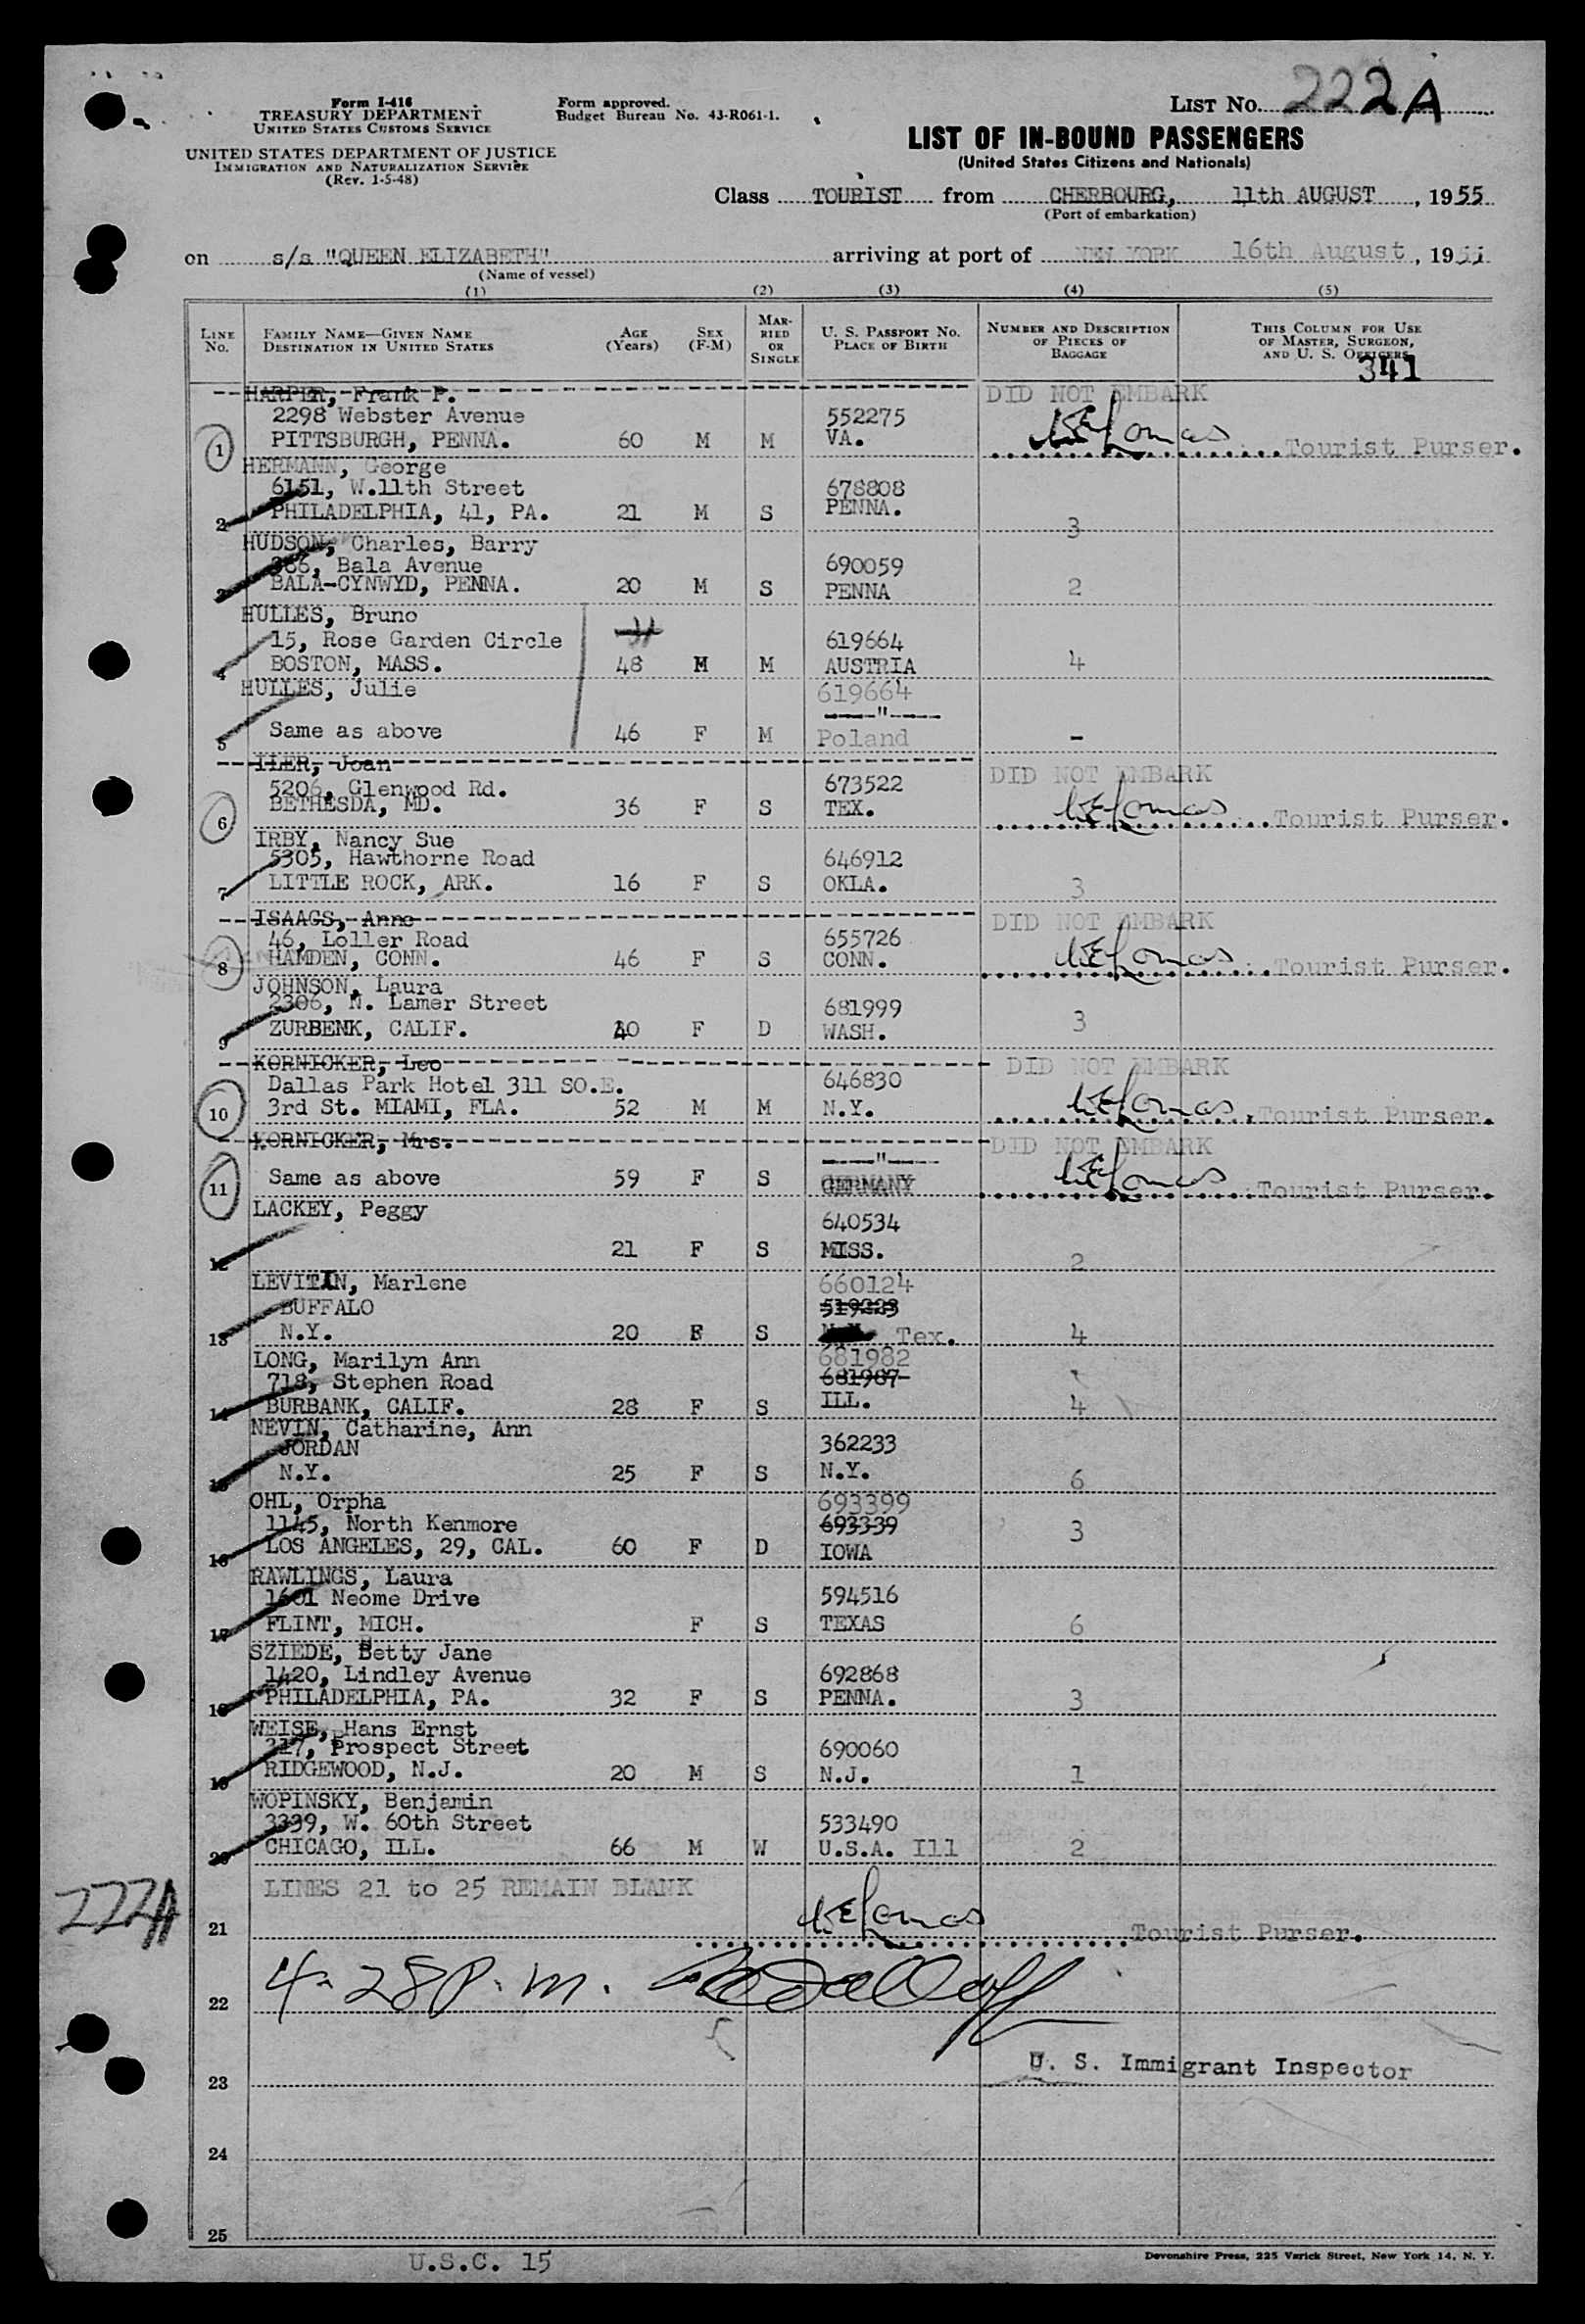 Form I-416
TREASURY DEPARTMENT
UNITED STATES CUSTOMS SERVICE
UNITED STATES DEPARTMENT OF JUSTICE
IMMIGRATION AND NATURALIZATION SERVICE
(Rev. 1-5-48)
Form approved.
Budget Bureau No. 43-R061-1.
LIST No. 222A
LIST OF IN-BOUND PASSENGERS
(United States Citizens and Nationals)
Class TOURIST from CHERBOURG, 11th AUGUST, 1955
(Port of embarkation)
on s/s "QUEEN ELIZABETH" arriving at port of NEW YORK 16th August, 1955
(Name of vessel)
(1) (2) (3) (4) (5)
LINE No. FAMILY NAME—GIVEN NAME DESTINATION IN UNITED STATES AGE (Years) SEX (F-M) MARRIED OR SINGLE U. S. PASSPORT No. PLACE OF BIRTH NUMBER AND DESCRIPTION OF PIECES OF BAGGAGE THIS COLUMN FOR USE OF MASTER, SURGEON, AND U. S. OFFICERS
341
HARPER, Frank P. DID NOT EMBARK
2298 Webster Avenue 552275
1 PITTSBURGH, PENNA. 60 M M VA. Tourist Purser.
HERMANN, George
6151, W.11th Street 678808
2 PHILADELPHIA, 41, PA. 21 M S PENNA. 3
HUDSON, Charles, Barry
366, Bala Avenue 690059
3 BALA-CYNWYD, PENNA. 20 M S PENNA 2
HULLES, Bruno
15, Rose Garden Circle 619664
4 BOSTON, MASS. 48 M M AUSTRIA 4
HULLES, Julie 619664
----"----
5 Same as above 46 F M Poland -
ILER, Joan DID NOT EMBARK
5206, Glenwood Rd. 673522
6 BETHESDA, MD. 36 F S TEX. Tourist Purser.
IRBY, Nancy Sue
5305, Hawthorne Road 646912
7 LITTLE ROCK, ARK. 16 F S OKLA. 3
ISAAGS, Anne DID NOT EMBARK
46, Loller Road 655726
8 HAMDEN, CONN. 46 F S CONN. Tourist Purser.
JOHNSON, Laura
2306, N. Lamer Street 681999
9 ZURBENK, CALIF. 40 F D WASH. 3
KORNICKER, Leo DID NOT EMBARK
Dallas Park Hotel 311 SO.E. 646830
10 3rd St. MIAMI, FLA. 52 M M N.Y. Tourist Purser.
KORNICKER, Mrs. DID NOT EMBARK
----"----
11 Same as above 59 F S GERMANY Tourist Purser.
LACKEY, Peggy 640534
12 21 F S MISS. 2
LEVITIN, Marlene 660124
BUFFALO 519223
13 N.Y. 20 F S Tex. 4
LONG, Marilyn Ann 681982
718, Stephen Road 681987
14 BURBANK, CALIF. 28 F S ILL. 4
NEVIN, Catharine, Ann
JORDAN 362233
15 N.Y. 25 F S N.Y. 6
OHL, Orpha 693399
1145, North Kenmore 693339 3
16 LOS ANGELES, 29, CAL. 60 F D IOWA
RAWLINGS, Laura
1601 Neome Drive 594516
17 FLINT, MICH. F S TEXAS 6
SZIEDE, Betty Jane
1420, Lindley Avenue 692868
18 PHILADELPHIA, PA. 32 F S PENNA. 3
WEISE, Hans Ernst
217, Prospect Street 690060
19 RIDGEWOOD, N.J. 20 M S N.J. 1
WOPINSKY, Benjamin
3339, W. 60th Street 533490
20 CHICAGO, ILL. 66 M W U.S.A. Ill 2
LINES 21 to 25 REMAIN BLANK
222A
21 Tourist Purser.
22 4-28 P.m.
U. S. Immigrant Inspector
23
24
25
U.S.C. 15
Devonshire Press, 225 Varick Street, New York 14, N. Y.